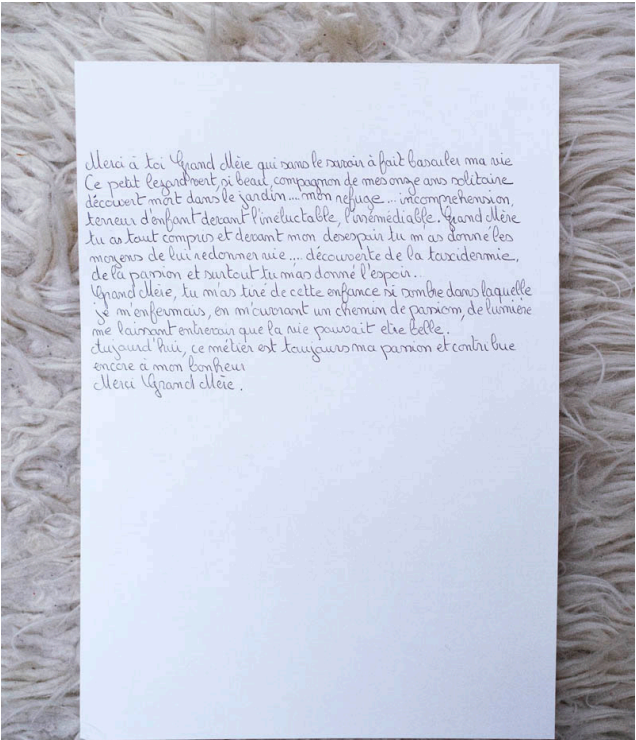 Merci à toi Grand Mère qui sans le savoir à fait basculer ma vie
Ce petit lezard vert, si beau, compagnon de mes onze ans solitaire
découvert mort dans le jardin.... mon refuge... incomprehension,
terreur d'enfant devant l'inéluctable, l'irrémédiable. Grand Mère
tu as tout compris et devant mon desespoir tu m'as donné les
moyens de lui redonner vie.... découverte de la taxidermie,
de la passion et surtout tu m'as donné l'espoir.
Grand Mère, tu m'as tiré de cette enfance si sombre dans laquelle
je m'enfermais, en m'ouvrant un chemin de passion, de lumière
me laissant entrevoir que la vie pouvait etre belle.
Aujourd'hui, ce métier est toujours ma passion et contribue
encore à mon bonheur
Merci Grand Mère.